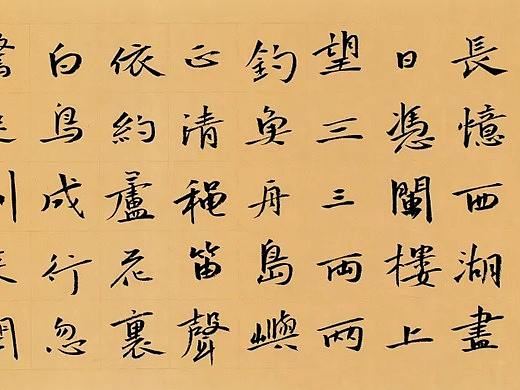 長憶西湖盡
日憑闌樓上
望三三兩兩
釣魚舟島嶼
正清穐笛聲
依約蘆花裏
白鳥成行忽